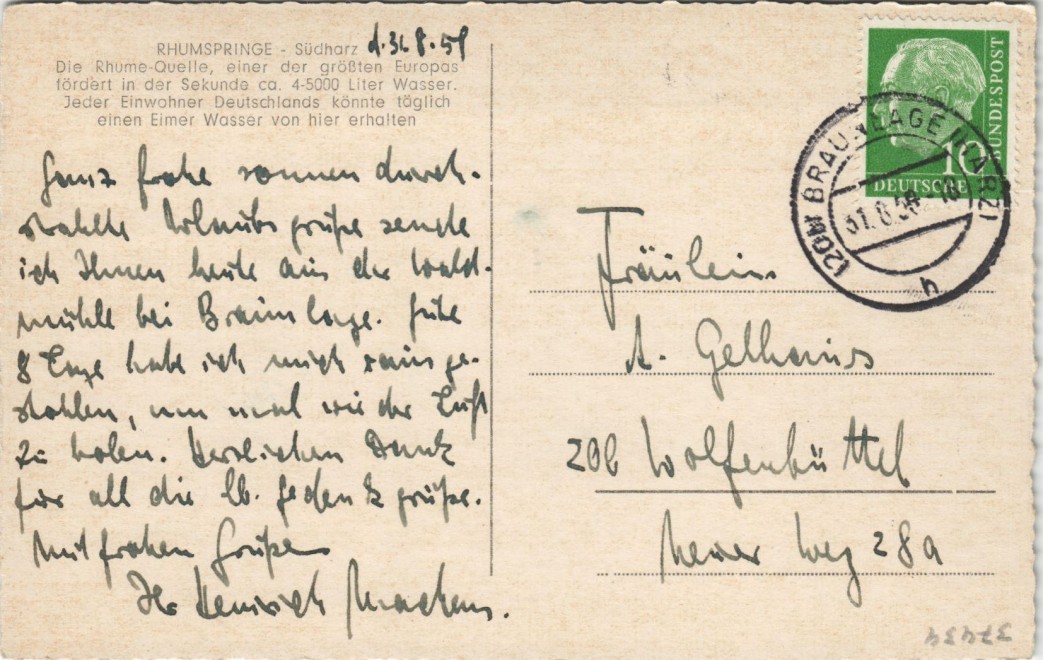 RHUMSPRINGE - Südharz d. 31.8.58
Die Rhume-Quelle, einer der größten Europas
fördert in der Sekunde ca. 4-5000 Liter Wasser.
Jeder Einwohner Deutschlands könnte täglich
einen Eimer Wasser von hier erhalten
Ganz frohe sonnen durch-
strahlte Urlaubsgrüße sende
ich Ihnen heute aus der Wald-
mühle bei Braunlage. Für
8 Tage habe ich mich rausge-
stohlen, um mal wieder Luft
zu holen. Herzlichen Dank
für all die lb. Gedenkgrüße.
Mit frohen Grüßen
Ihr Heinrich Machens.
BUNDESPOST
10
DEUTSCHE
(20b) BRAUNLAGE (HARZ)
31.8.58
h
Fräulein
A. Gelhaus
20b Wolfenbüttel
Neuer Weg 28a